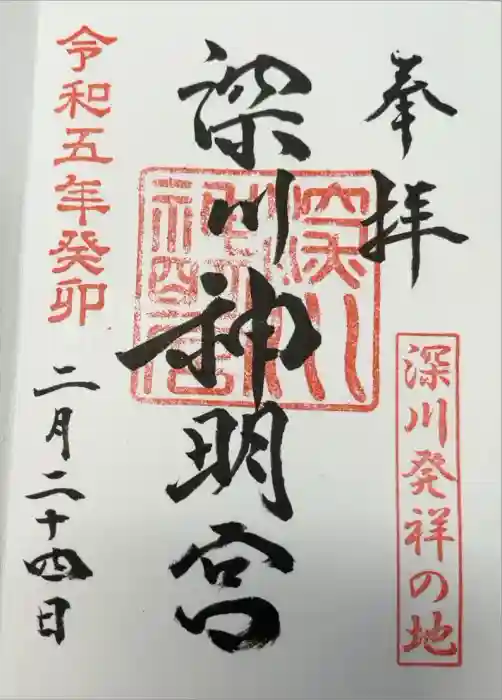 奉拝
深川発祥の地
深川神明宮
深川神明宮
令和五年癸卯
二月二十四日